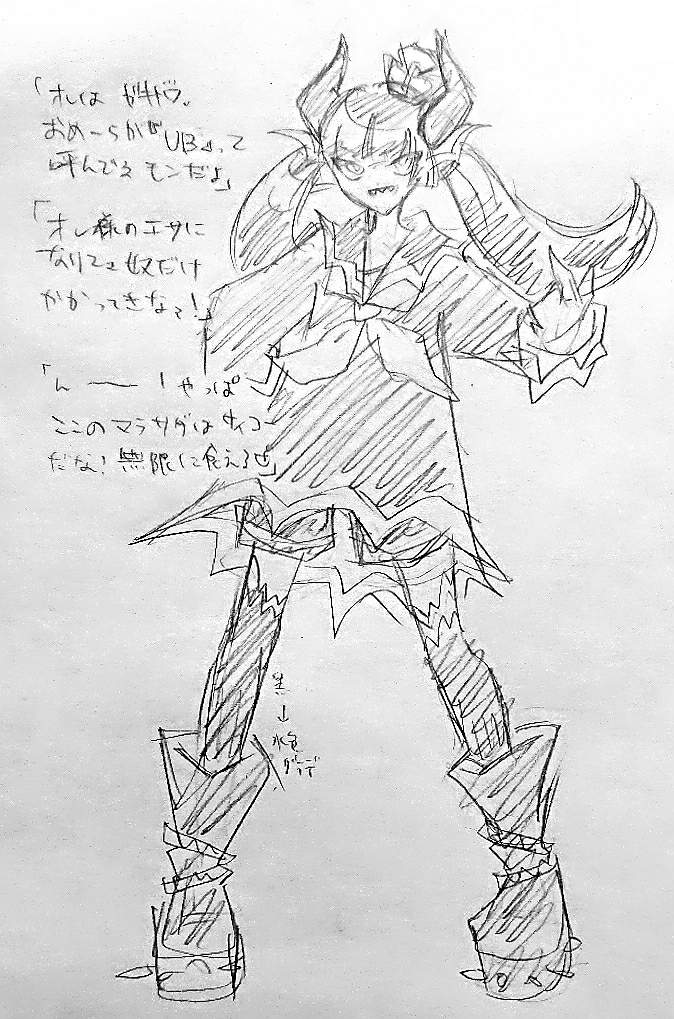 「オレは ガキドウ。
おめーらが『UB』って
呼んでるモンだよ」
「オレ様のエサに
なりてェ奴だけ
かかってきなァ！」
「んーー！やっぱ
ここのマラサダはサイコー
だな！無限に食えるぜ」
黒
↓
水色
グラデ